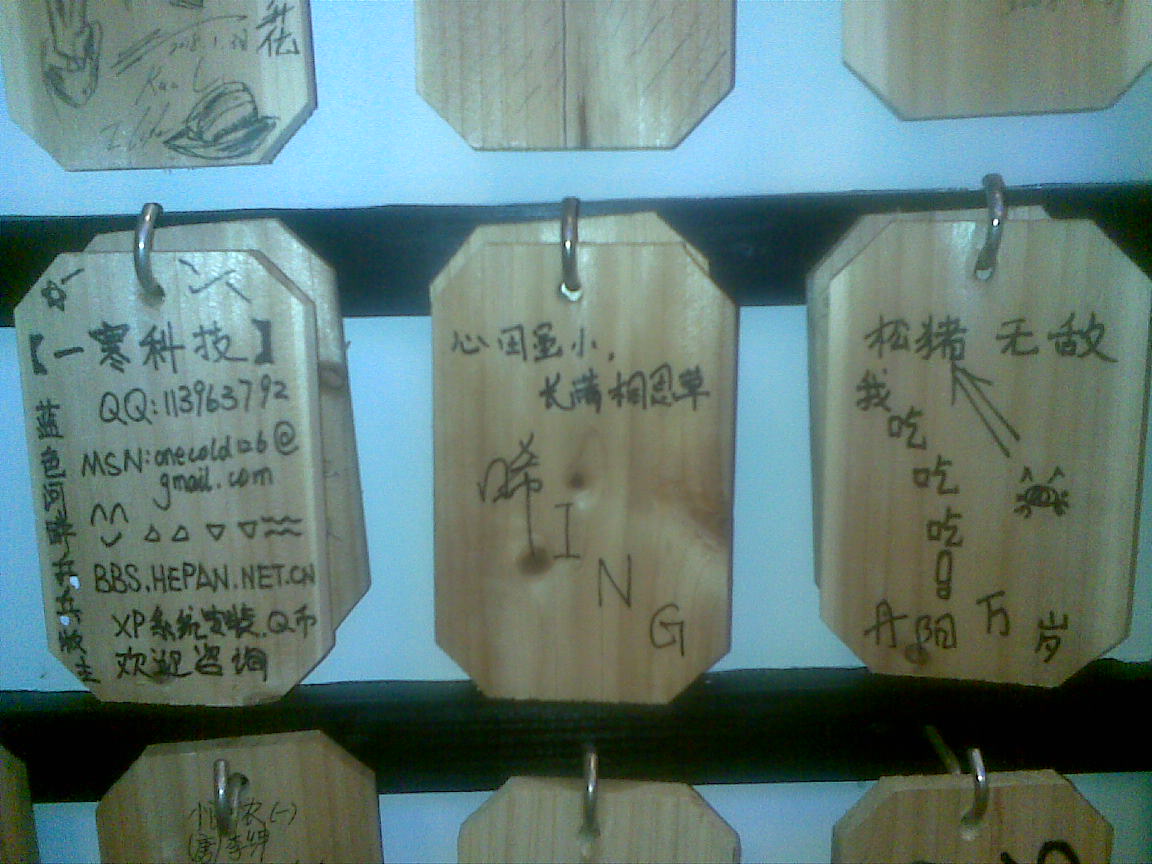 花
【一寒科技】
QQ:113963792
MSN:onecold126@
gmail.com
BBS.HEPAN.NET.CN
XP系统安装.Q币
欢迎咨询
蓝色河畔乒乓版主
心田虽小,
长满相思草
晞
I
N
G
松猪 无敌
我
吃
吃
吃
!
丹阳万岁
(一)
李绅